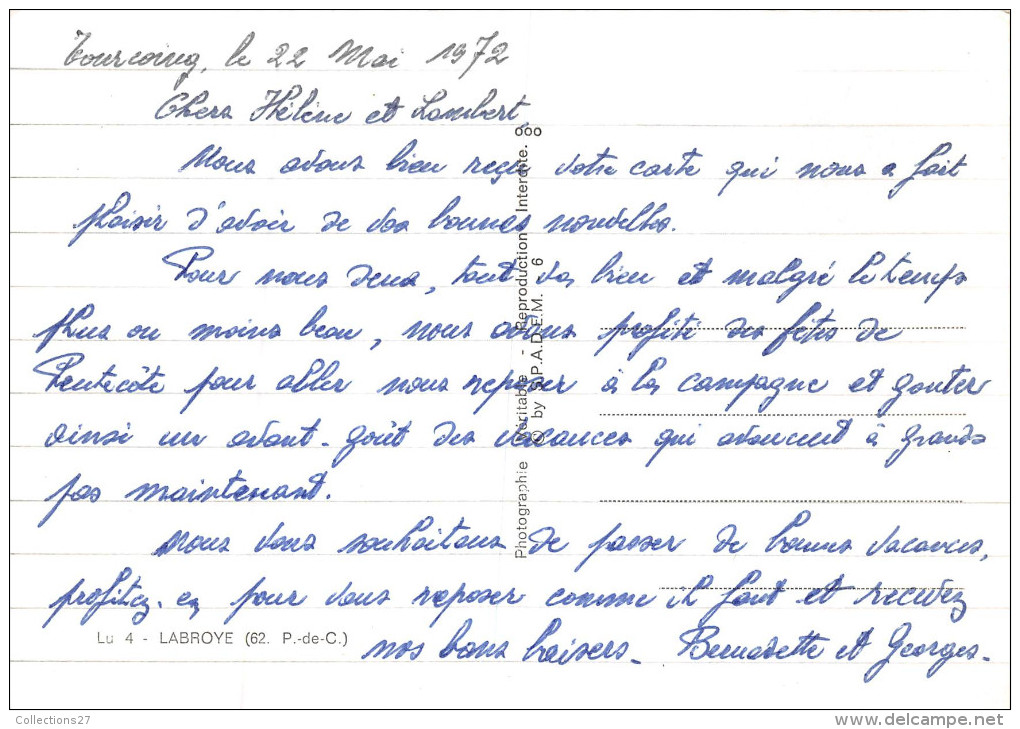 Tourcoing, le 22 Mai 1972
Chers Hélène et Lambert,
Nous avons bien reçu votre carte qui nous a fait
plaisir d'avoir de vos bonnes nouvelles.
Pour nous deux, tout va bien et malgré le temps
plus ou moins beau, nous avons profité des fêtes de
Pentecôte pour aller nous reposer à la campagne et gouter
ainsi un avant-goût des vacances qui avancent à grands
pas maintenant.
Nous vous souhaitons de passer de bonnes vacances,
profitez-en pour vous reposer comme il faut et recevez
nos bons baisers. Bernadette et Georges.
Lu 4 - LABROYE (62. P.-de-C.)
Photographie Véritable - Reproduction Interdite.
© by S.P.A.D.E.M. 6
Collections27
www.delcampe.net